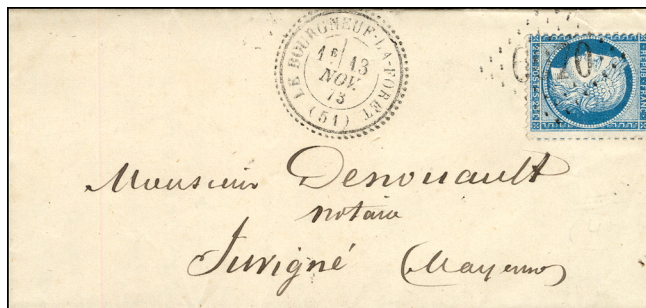 LE BOURGNEUF-LA-FORÊT
1E 13
NOV.
73
(51)
Monsieur Desnouault
notaire
Juvigné (Mayenne)